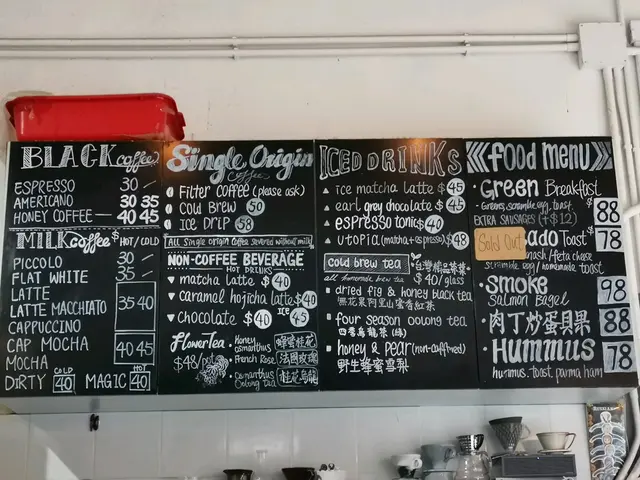 BLACK coffee
ESPRESSO 30 -
AMERICANO 30 35
HONEY COFFEE 40 45
MILK coffee $ HOT / COLD
PICCOLO 30 -
FLAT WHITE 35 -
LATTE
LATTE MACCHIATO 35 40
CAPPUCCINO
CAP MOCHA
MOCHA 40 45
DIRTY COLD 40 MAGIC HOT 40
Single Origin
Coffee
Filter Coffee (please ask)
Cold Brew 50
Ice Drip 58
All single origin coffee severed without milk
NON-COFFEE BEVERAGE
HOT DRINKS
matcha latte $40
caramel hojicha latte $40
chocolate $40 ICE 45
flower Tea
$48/pot
Honey osmanthus 蜂蜜桂花
French Rose 法國玫瑰
Osmanthus Oolong tea 桂花烏龍
ICED DRINKS
ice matcha latte $45
earl grey chocolate $45
espresso tonic $40
utopia (matcha + espresso) $48
cold brew tea 台灣
all homemade brew tea $40/glass
dried fig & honey black tea
無花果阿里山蜜香紅茶
four season oolong tea
四季烏龍茶
honey & pear (non-caffined)
野生蜂蜜雪梨
food menu
Green Breakfast
Greens, scramble egg, toast 88
EXTRA SAUSAGES (+$12)
Sold Out ado Toast $78
mash / feta cheese
scramble egg / homemade toast
Smoke 98
Salmon Bagel
肉丁炒蛋貝果 88
Hummus 78
hummus, toast, parma ham